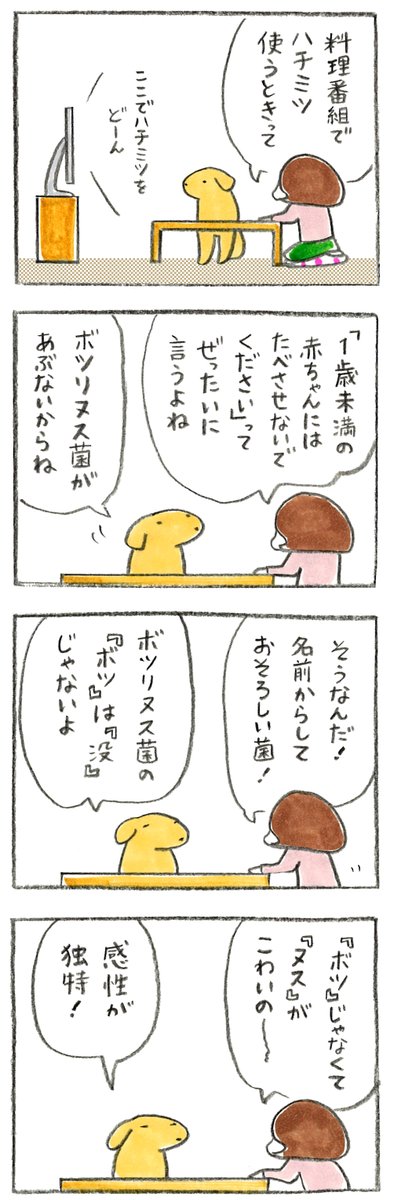 料理番組で
ハチミツ
使うときって
ここでハチミツを
どーん
「1歳未満の
赤ちゃんには
たべさせないで
ください」って
ぜったいに
言うよね
ボツリヌス菌が
あぶないからね
そうなんだ!
名前からして
おそろしい菌!
ボツリヌス菌の
『ボツ』は『没』
じゃないよ
『ボツ』じゃなくて
『ヌス』が
こわいの〜
感性が
独特!